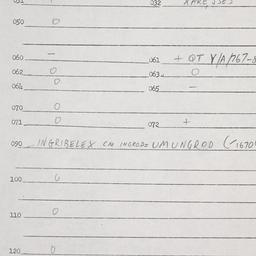 031 032
050 0
060 — 061 + QT Y/A/767-8
062 0 063 0
064 0 065 —
070 0
071 0 072 +
090 INGRIBELEX UMUNGROD (1670
100 0
110 0
120 0